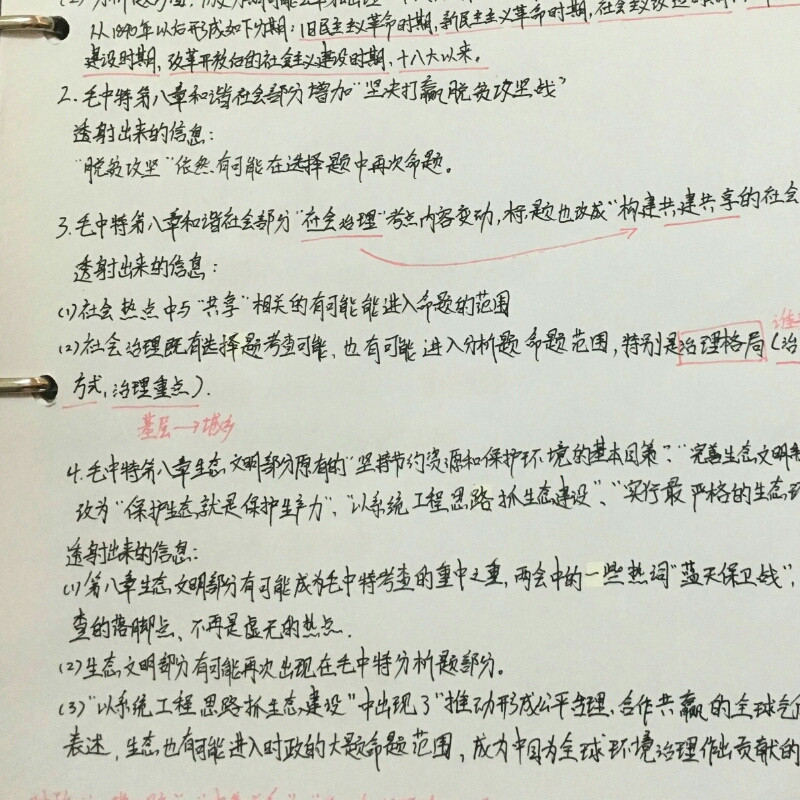 从1840年以后形成如下分期：旧民主主义革命时期，新民主主义革命时期，社会主义
建设时期，改革开放后的社会主义建设时期，十八大以来。
2.毛中特第八章和谐社会部分增加"坚决打赢脱贫攻坚战"
透射出来的信息：
"脱贫攻坚"依然有可能在选择题中再次命题。
3.毛中特第八章和谐社会部分"社会治理"考点内容变动，标题也改成"构建共建共享的社会
透射出来的信息：
(1)社会热点中与"共享"相关的有可能能进入命题的范围
(2)社会治理既有选择题考查可能，也有可能进入分析题命题范围，特别是治理格局(治
方式，治理重点).
基层→城乡
4.毛中特第八章生态文明部分原有的"坚持节约资源和保护环境的基本国策"、"完善生态文明
改为"保护生态就是保护生产力"、"以系统工程思路抓生态建设"、"实行最严格的生态环
透射出来的信息：
(1)第八章生态文明部分有可能成为毛中特考查的重中之重，两会中的一些热词"蓝天保卫战"，
查的落脚点、不再是虚无的热点.
(2)生态文明部分有可能再次出现在毛中特分析题部分。
(3)"以系统工程思路抓生态建设"中出现了"推动形成公平合理、合作共赢的全球气
表述，生态也有可能进入时政的大题命题范围，成为中国为全球环境治理作出贡献的